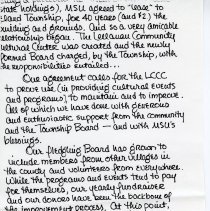 state holdings), MSU agreed to "lease" to
Leland Township, for 40 years (and #2) the
building and grounds. And so a very amicable
relationship began. The Leelanau Community
Cultural Center was created and the newly
formed Board charged, by the Township, with
the responsibilities entailed...
Our agreement calls for the LCCC
to prove use (in providing cultural events
and programs), to maintain and to improve.
All of which we have done with generous
and enthusiastic support from the community
and the Township Board — and with MSU's
blessings.
Our fledgling Board has grown to
include members from other villages in
the county and volunteers from everywhere.
While the programs and events tend to pay
for themselves, our yearly fundraiser
and our donors have been the backbone of
the improvement process. At this point,